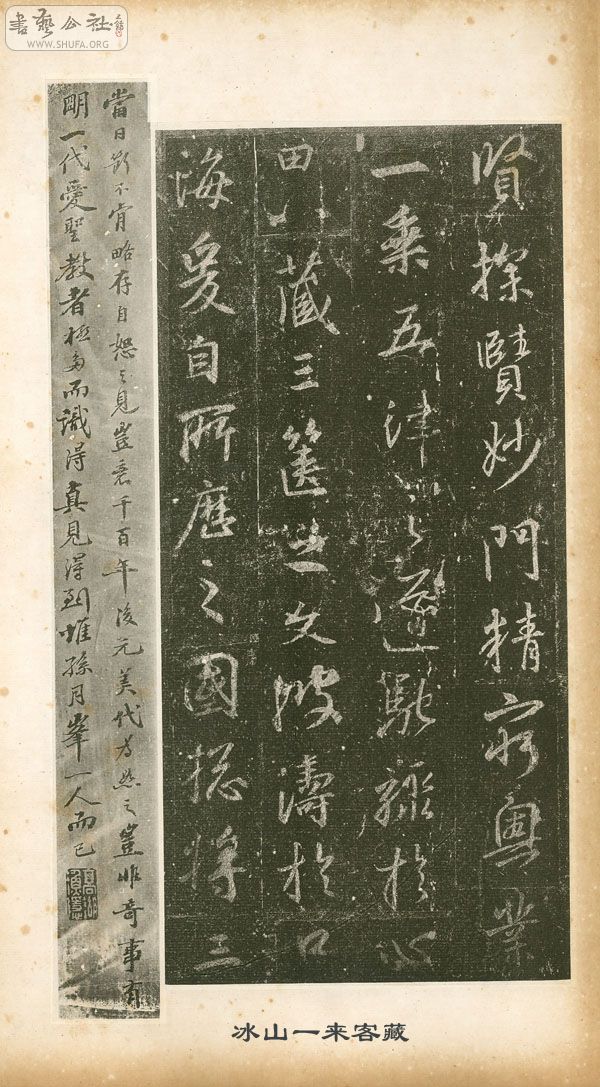 書藝公社
WWW.SHUFA.ORG
賢探賾妙門精窮奧業
一乘五律之道馳驟於心
田八藏三篋之文波濤於口
海爰自所歷之國揔將三
當日斷不肯略存自恕之見豈意千百年後元美代為之豈非奇事有
明一代愛聖教者極多而識得真見得到惟孫月峯一人而已
冰山一来客藏